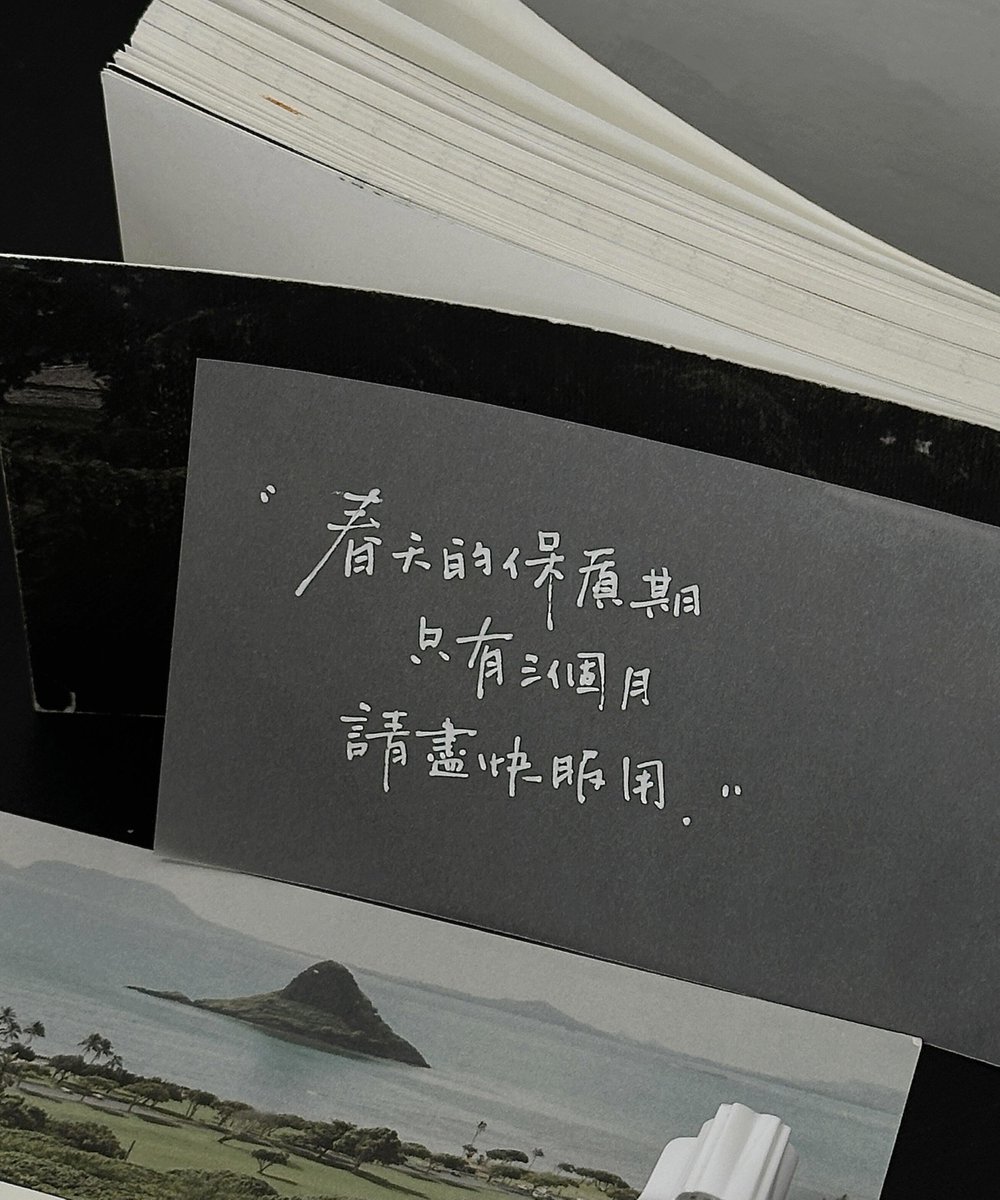 "春天的保質期
只有三個月
請盡快服用."